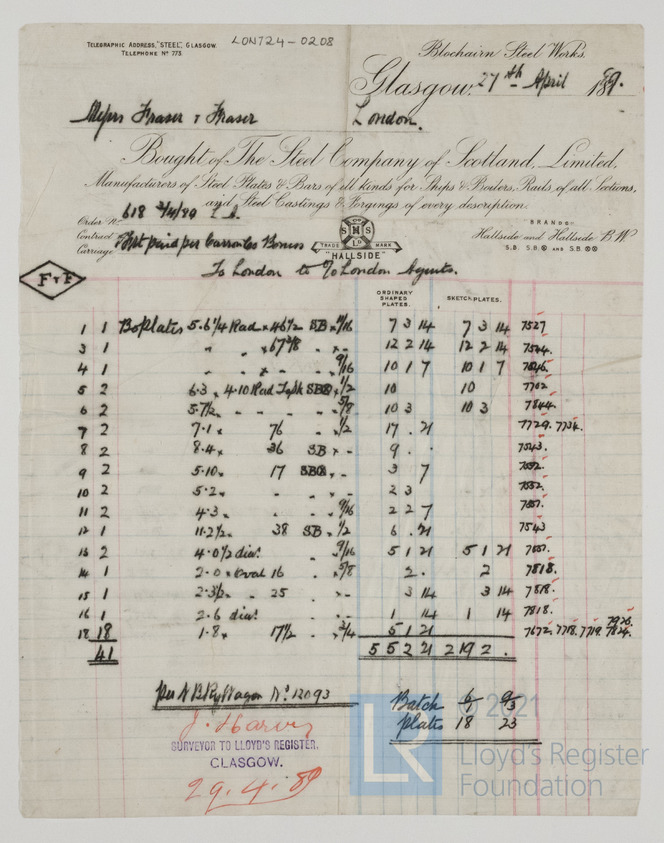 TELEGRAPHIC ADDRESS, "STEEL", GLASGOW.
TELEPHONE Nº 773.
LON724-0208
Blochairn Steel Works.
Glasgow, 27th April 1889.
Messrs Fraser & Fraser
London.
Bought of The Steel Company of Scotland, Limited,
Manufacturers of Steel Plates & Bars of all kinds for Ships & Boilers, Rails, of all Sections,
and Steel Castings & Forgings of every description.
Order No. 618 2/4/89
Contract
Carriage
Frt paid per Carron Cos
TRADE MARK
"HALLSIDE"
BRANDS
Hallside and Hallside B W
S.B. S.B. AND S.B.
To London to o/ London Agents.
F & F
ORDINARY SHAPED PLATES.
SKETCH PLATES.
1 1 BoPlates 5.6 1/4 Rad × 46 1/2 SB × 9/16 7 3 14 7 3 14 7527
3 1 " " × 67 3/8 " × " 12 2 14 12 2 14
4 1 " × " " × 9/16 10 1 7 10 1 7
5 2 6.3 × 4.10 Rad 1/2 10 10 7702
6 2 5.7 1/2 " " " " 5/8 10 3 10 3 7844.
7 2 7.1 × 76 " × 1/2 17 . 21 7729. 7734.
8 2 8.4 × 36 SB × " 9 . . 7543.
9 2 5.10 × 17 × " 3 7
10 2 5.2 × " " × " 2 3
11 2 4.3 × " " 9/16 2 2 7
12 1 11.2 1/2 × 38 SB × 1/2 6 . 21 7543
13 2 4.0 1/2 dia. " 9/16 5 1 21 5 1 21
14 1 2.0 × oval 16 " 5/8 2. 2 7818.
15 1 " 25 " × " 3 14 3 14 7818.
16 1 2.6 dia. " × " 1 14 1 14 7818.
18 18 1.8 × 17 1/2 " × 3/4 5 1 21 7672. 7718. 7719. 7824.
41 55 2 21 2 19 2 .
per N B Ry Wagon No. 12093
Batch 6/1 9/3
plates 18 23
J. Harvey
SURVEYOR TO LLOYD'S REGISTER,
GLASGOW.
29.4.89
© 2021
LR
Lloyd's Register
Foundation